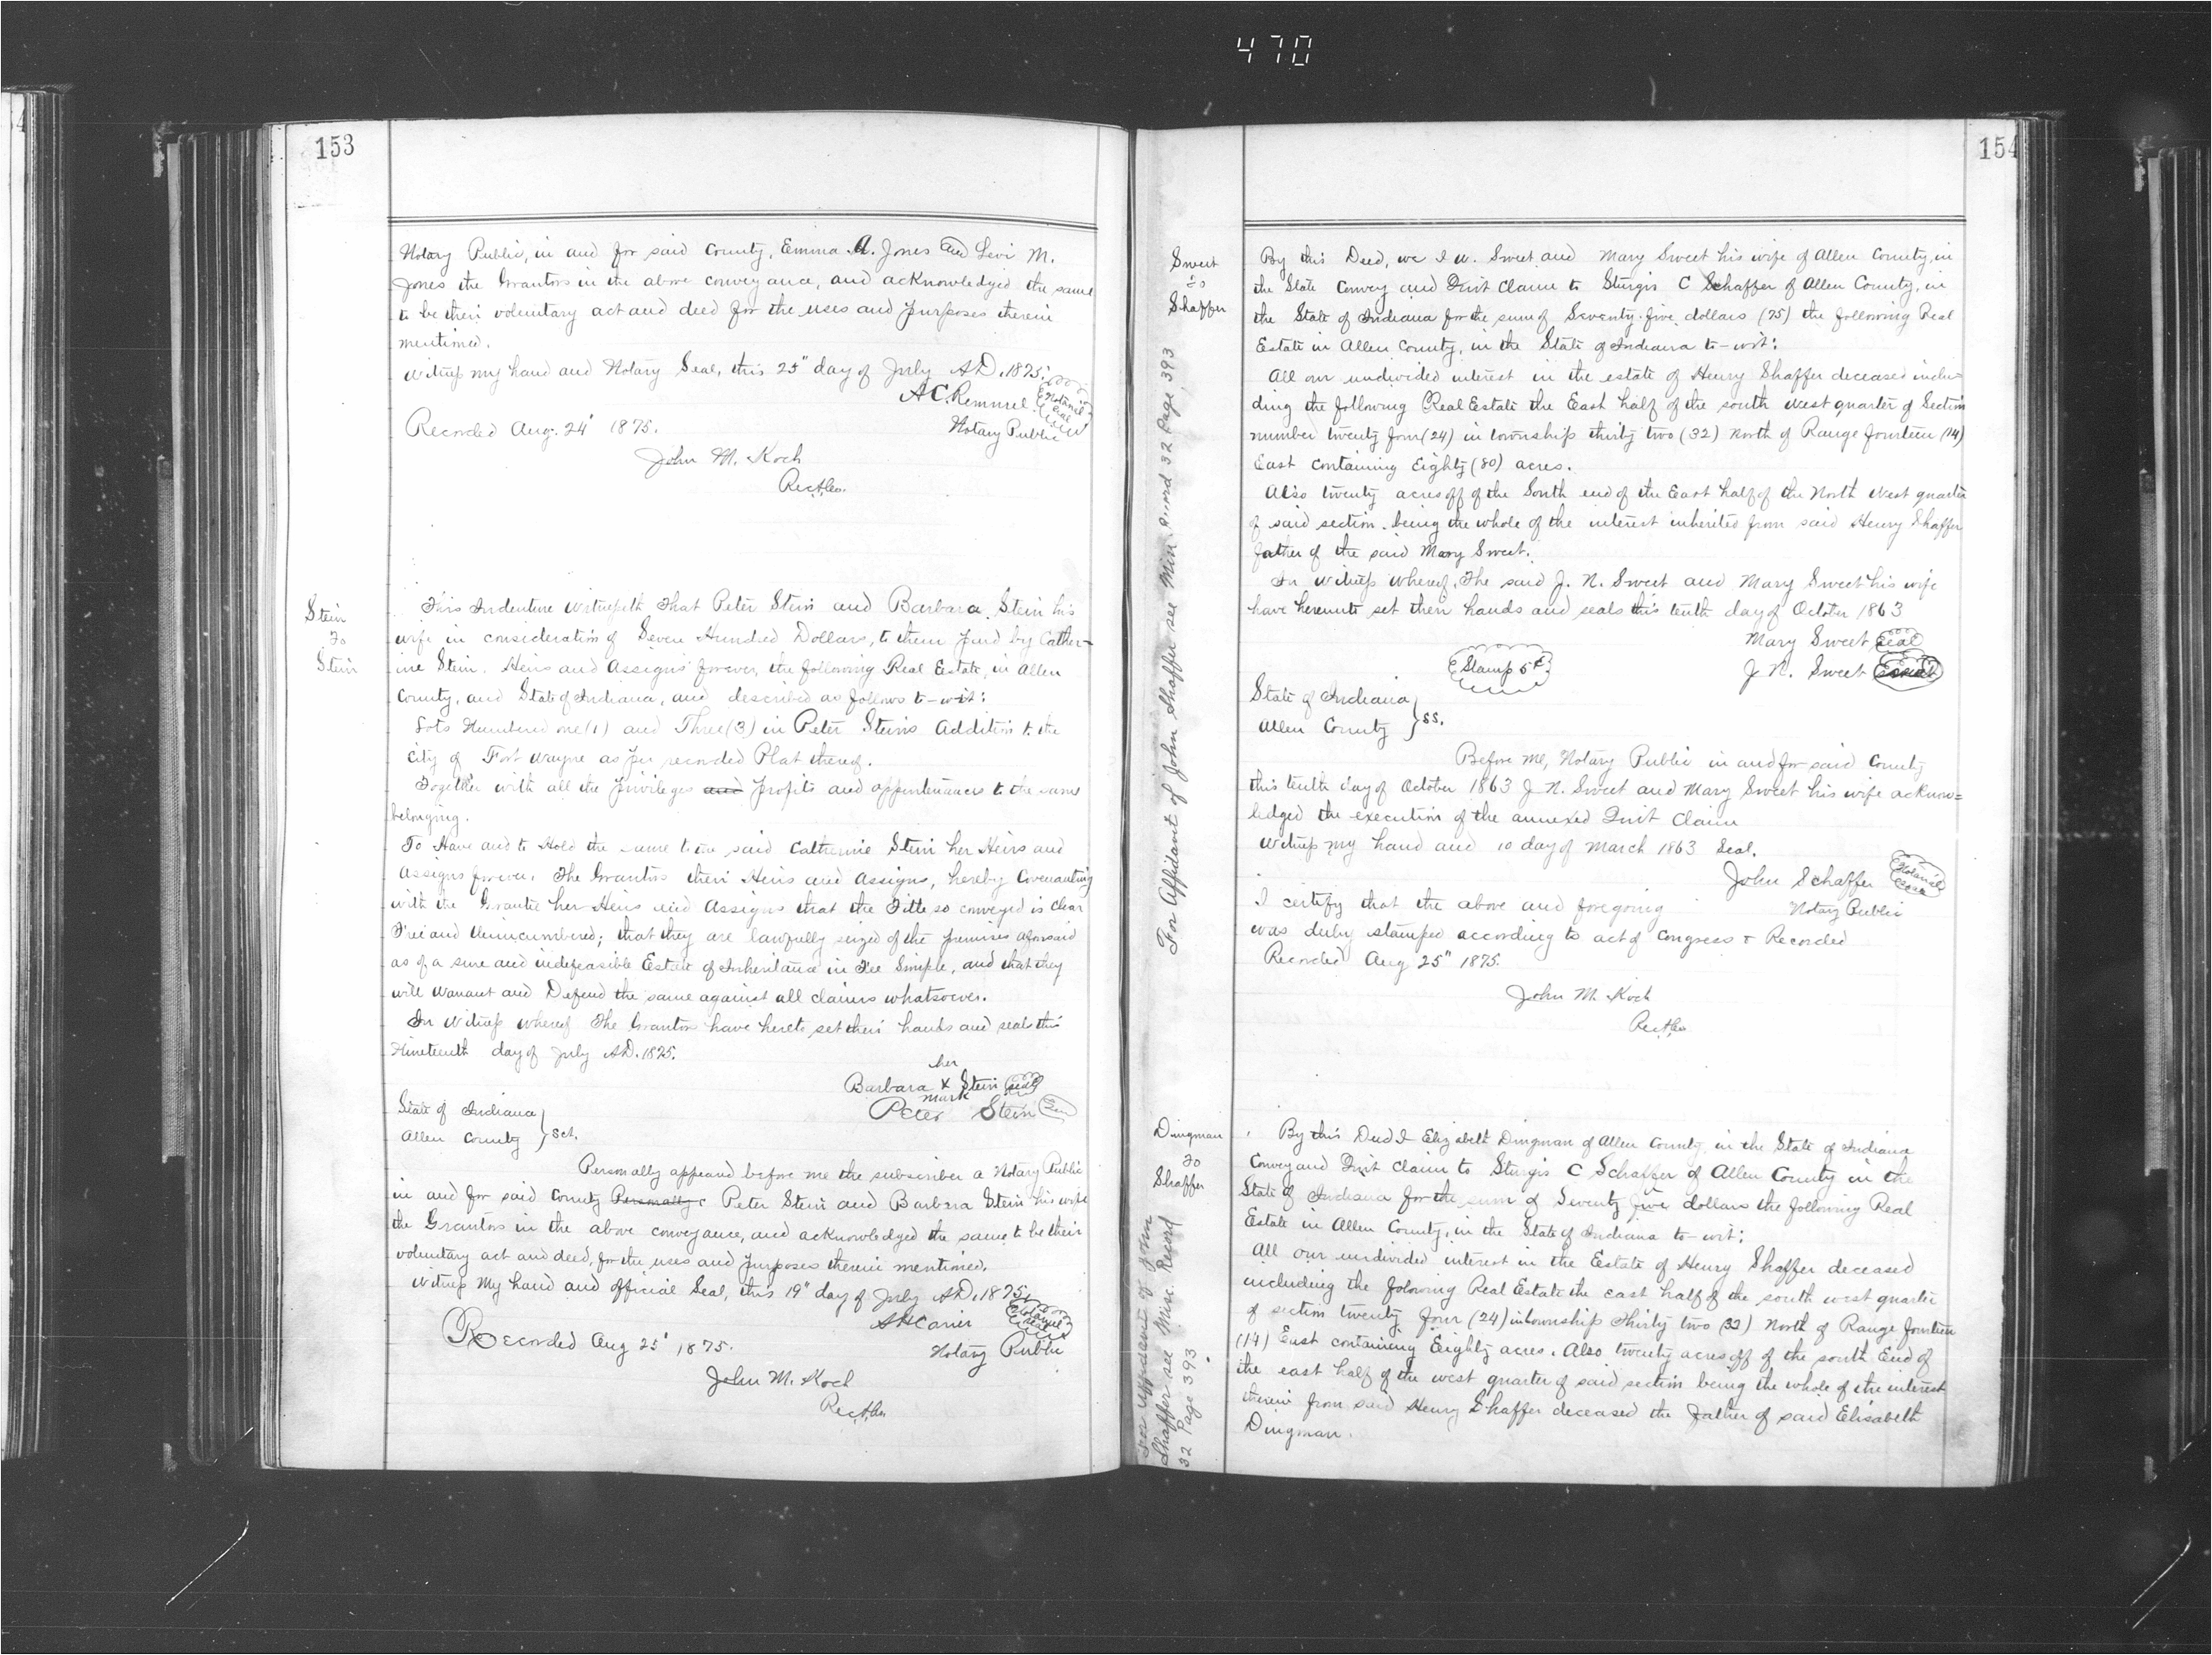 470
153
Notary Public, in and for said County, Emma A. Jones and Levi M.
Jones the Grantors in the above conveyance, and acknowledged the same
to be their voluntary act and deed for the uses and purposes therein
mentioned.
Witness my hand and Notary Seal, this 25" day of July A.D. 1875.
A.C. Remmel Notarial Seal
Notary Public
Recorded Aug. 24" 1875.
John M. Koch
Rec.A.Co.
Stein
to
Stein
This Indenture Witnesseth That Peter Stein and Barbara Stein his
wife in consideration of Seven Hundred Dollars, to them paid by Cather-
ine Stein. Heirs and Assigns forever, the following Real Estate, in Allen
County, and State of Indiana, and described as follows to-wit:
Lots Numbered one (1) and Three (3) in Peter Steins Addition to the
city of Fort Wayne as per recorded Plat thereof.
Together with all the privileges and profits and appurtenances to the same
belonging.
To Have and to Hold the same to the said Catherine Stein her Heirs and
Assigns forever. The Grantors their Heirs and Assigns, hereby Covenanting
with the Grantee her Heirs and Assigns that the Title so conveyed is clear
Free and Unincumbered; that they are lawfully seized of the premises aforesaid
as of a sure and indefeasible Estate of Inheritance in Fee Simple, and that they
will Warrant and Defend the same against all claims whatsoever.
In Witness whereof The Grantors have hereto set their hands and seals this
Nineteenth day of July A.D. 1875.
her
Barbara X Stein seal
mark
Peter Stein
State of Indiana
Allen County } Sct.
Personally appeared before me the subscriber a Notary Public
in and for said County Personally Peter Stein and Barbara Stein his wife
the Grantors in the above conveyance, and acknowledged the same to be their
voluntary act and deed, for the uses and purposes therein mentioned.
Witness My hand and official Seal, this 19" day of July A.D. 1875.
A H Carier Notarial Seal
Notary Public
Recorded Aug 25" 1875.
John M. Koch
Rec.A.Co.
154
Sweet
to
Shaffer
For Affidavit of John Shaffer see Misc. Record 32 Page 393
By this Deed, we J. N. Sweet and Mary Sweet his wife of Allen County, in
the State Convey and Quit Claim to Sturgis C Schaffer of Allen County, in
the State of Indiana for the sum of Seventy-five dollars (75) the following Real
Estate in Allen County, in the State of Indiana to-wit:
All our undivided interest in the estate of Henry Shaffer deceased inclu=
ding the following Real Estate the East half of the south west quarter of Section
number twenty four (24) in township thirty two (32) North of Range fourteen (14)
East containing Eighty (80) acres.
Also twenty acres off of the South end of the East half of the North West quarter
of said section. being the whole of the interest inherited from said Henry Shaffer
father of the said Mary Sweet.
In Witness Whereof, The said J. N. Sweet and Mary Sweet his wife
have hereunto set their hands and seals this tenth day of October 1863
Mary Sweet Seal
Stamp 5¢
J N. Sweet
State of Indiana
Allen County } SS.
Before me, Notary Public in and for said County
this tenth day of October 1863 J N. Sweet and Mary Sweet his wife acknow=
ledged the execution of the annexed Quit Claim
Witness my hand and 10 day of March 1863 Seal.
John Schaffer Notarial Seal
Notary Public
I certify that the above and foregoing
was duly stamped according to act of Congress & Recorded
Recorded Aug 25" 1875.
John M. Koch
Rec.A.Co.
Dingman
to
Shaffer
For Affidavit of John
Shaffer see Misc. Record
32 Page 393
By this Deed I Elizabeth Dingman of Allen County, in the State of Indiana
Convey and Quit Claim to Sturgis C Schaffer of Allen County in the
State of Indiana for the sum of Seventy five dollars the following Real
Estate in Allen County, in the State of Indiana to-wit:
All our undivided interest in the Estate of Henry Shaffer deceased
including the following Real Estate the east half of the south west quarter
of section twenty four (24) in township Thirty two (32) North of Range fourteen
(14) East containing Eighty acres. Also twenty acres off of the south End of
the east half of the west quarter of said section being the whole of the interest
therein from said Henry Shaffer deceased the father of said Elisabeth
Dingman.